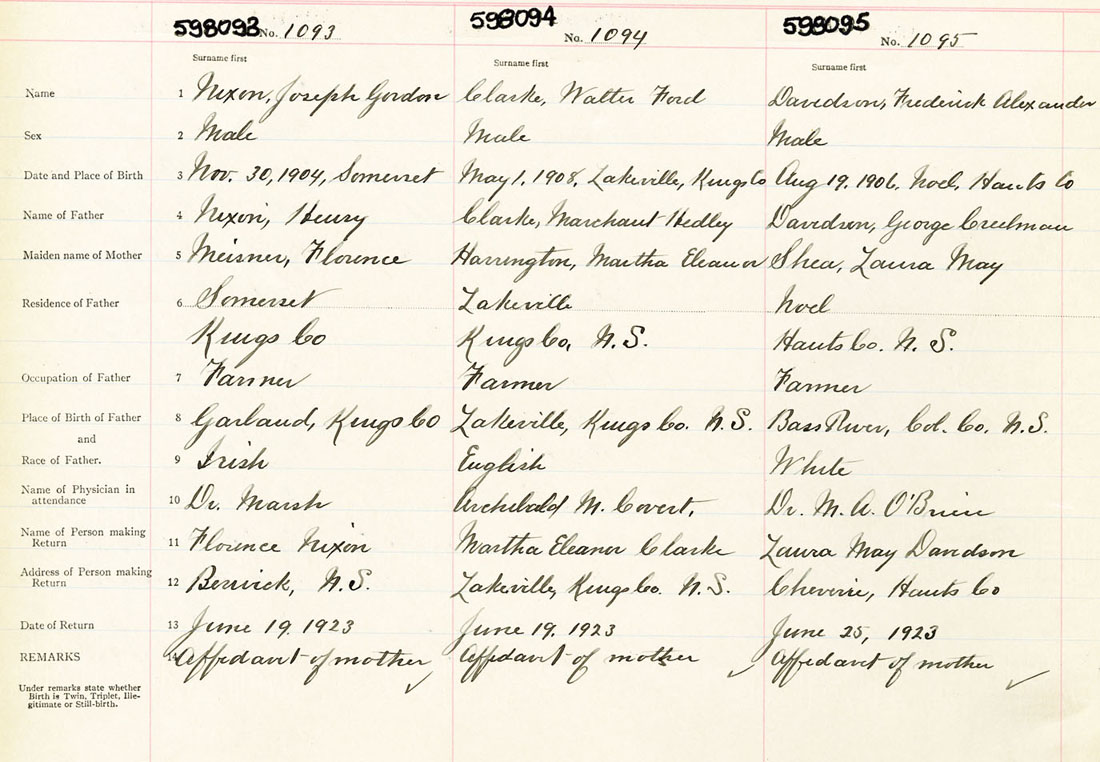 598093 No. 1093 598094 No. 1094 598095 No. 1095
Surname first Surname first Surname first
Name 1 Nixon, Joseph Gordon Clarke, Walter Ford Davidson, Frederick Alexander
Sex 2 Male Male Male
Date and Place of Birth 3 Nov. 30, 1904, Somerset May 1, 1908, Lakeville, Kings Co Aug 19. 1906, Noel, Hants Co
Name of Father 4 Nixon, Henry Clarke, Marchant Hedley Davidson, George Creelman
Maiden name of Mother 5 Meisner, Florence Harrington, Martha Eleanor Shea, Laura May
Residence of Father 6 Somerset Lakeville Noel
Kings Co Kings Co, N.S. Hants Co. N.S.
Occupation of Father 7 Farmer Farmer Farmer
Place of Birth of Father 8 Garland, Kings Co Lakeville, Kings Co. N.S. Bass River, Col. Co. N.S.
and
Race of Father. 9 Irish English White
Name of Physician in
attendance 10 Dr. Marsh Archibald M. Covert, Dr. M. A. O'Brien
Name of Person making
Return 11 Florence Nixon Martha Eleanor Clarke Laura May Davidson
Address of Person making
Return 12 Berwick, N.S. Lakeville, Kings Co. N.S. Cheverie, Hants Co
Date of Return 13 June 19. 1923 June 19. 1923 June 25, 1923
REMARKS 14 Affidavit of mother Affidavit of mother Affidavit of mother
Under remarks state whether
Birth is Twin, Triplet, Ille-
gitimate or Still-birth.